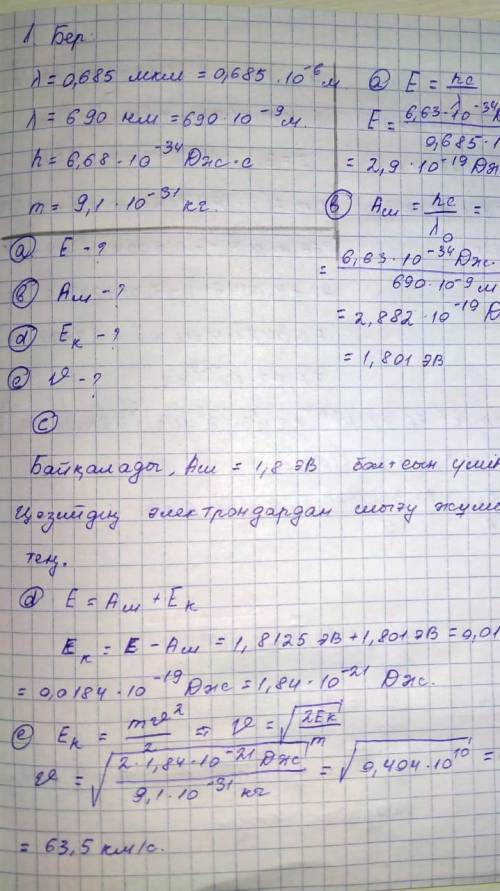 1 Бер.
λ = 0,685 мкм = 0,685 · 10⁻⁶ м
λ = 690 нм = 690 · 10⁻⁹ м.
h = 6,68 · 10⁻³⁴ Дж · с
m = 9,1 · 10⁻³¹ кг.
ⓐ E - ?
ⓑ Aш - ?
ⓓ Eк - ?
ⓔ υ - ?
ⓐ E = hc/λ
E = 6,63 · 10⁻³⁴ / 0,685 · 1
= 2,9 · 10⁻¹⁹ Дж
ⓑ Aш = hc/λ₀ =
= 6,63 · 10⁻³⁴ Дж · / 690 · 10⁻⁹ м
= 2,882 · 10⁻¹⁹ Д
= 1,801 эВ
ⓒ
Байқалады, Aш = 1,8 эВ үшін
Цезийдің электрондардан шығу жұмы
тең.
ⓓ E = Aш + Eк
Eк = E - Aш = 1,8125 эВ + 1,801 эВ = 0,01
= 0,0184 · 10⁻¹⁹ Дж = 1,84 · 10⁻²¹ Дж.
ⓔ Eк = mυ²/2 = υ = √(2Eк/m)
υ = √(2 · 1,84 · 10⁻²¹ Дж / 9,1 · 10⁻³¹ кг) = √(0,404 · 10¹⁰) =
= 63,5 км/с.